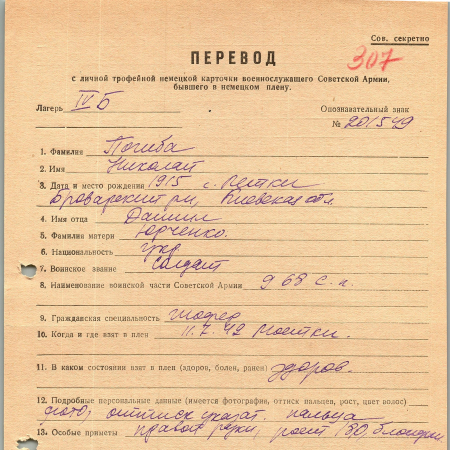 Сов. секретно
307
ПЕРЕВОД
с личной трофейной немецкой карточки военнослужащего Советской Армии,
бывшего в немецком плену.
Лагерь IV Б
Опознавательный знак
№ 201549
1. Фамилия Погиба
2. Имя Николай
3. Дата и место рождения 1915 с.
Броварский р-н, Киевская обл.
4. Имя отца Даниил
5. Фамилия матери Юрченко.
6. Национальность укр.
7. Воинское звание солдат
8. Наименование воинской части Советской Армии 968 с.п.
9. Гражданская специальность шофер
10. Когда и где взят в плен 11.7.42
11. В каком состоянии взят в плен (здоров, болен, ранен) здоров.
12. Подробные персональные данные (имеется фотография, оттиск пальцев, рост, цвет волос)
фото, оттиск указат. пальца
13. Особые приметы правой руки, рост 180, блондин